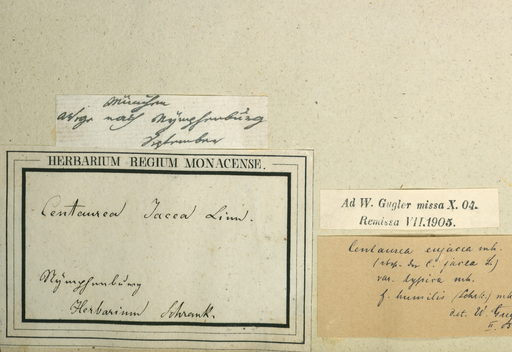 München
nach Nymphenburg
September
HERBARIUM REGIUM MONACENSE.
Centaurea Jacea Linn.
Nymphenburg
Herbarium Schrank.
Ad W. Gugler missa X. 04.
Remissa VII. 1905.
Centaurea eujacea mh.
(sbsp. der C. jacea L.)
var. typica mh.
f. humilis (Schrk.) mh
det. W. Gug